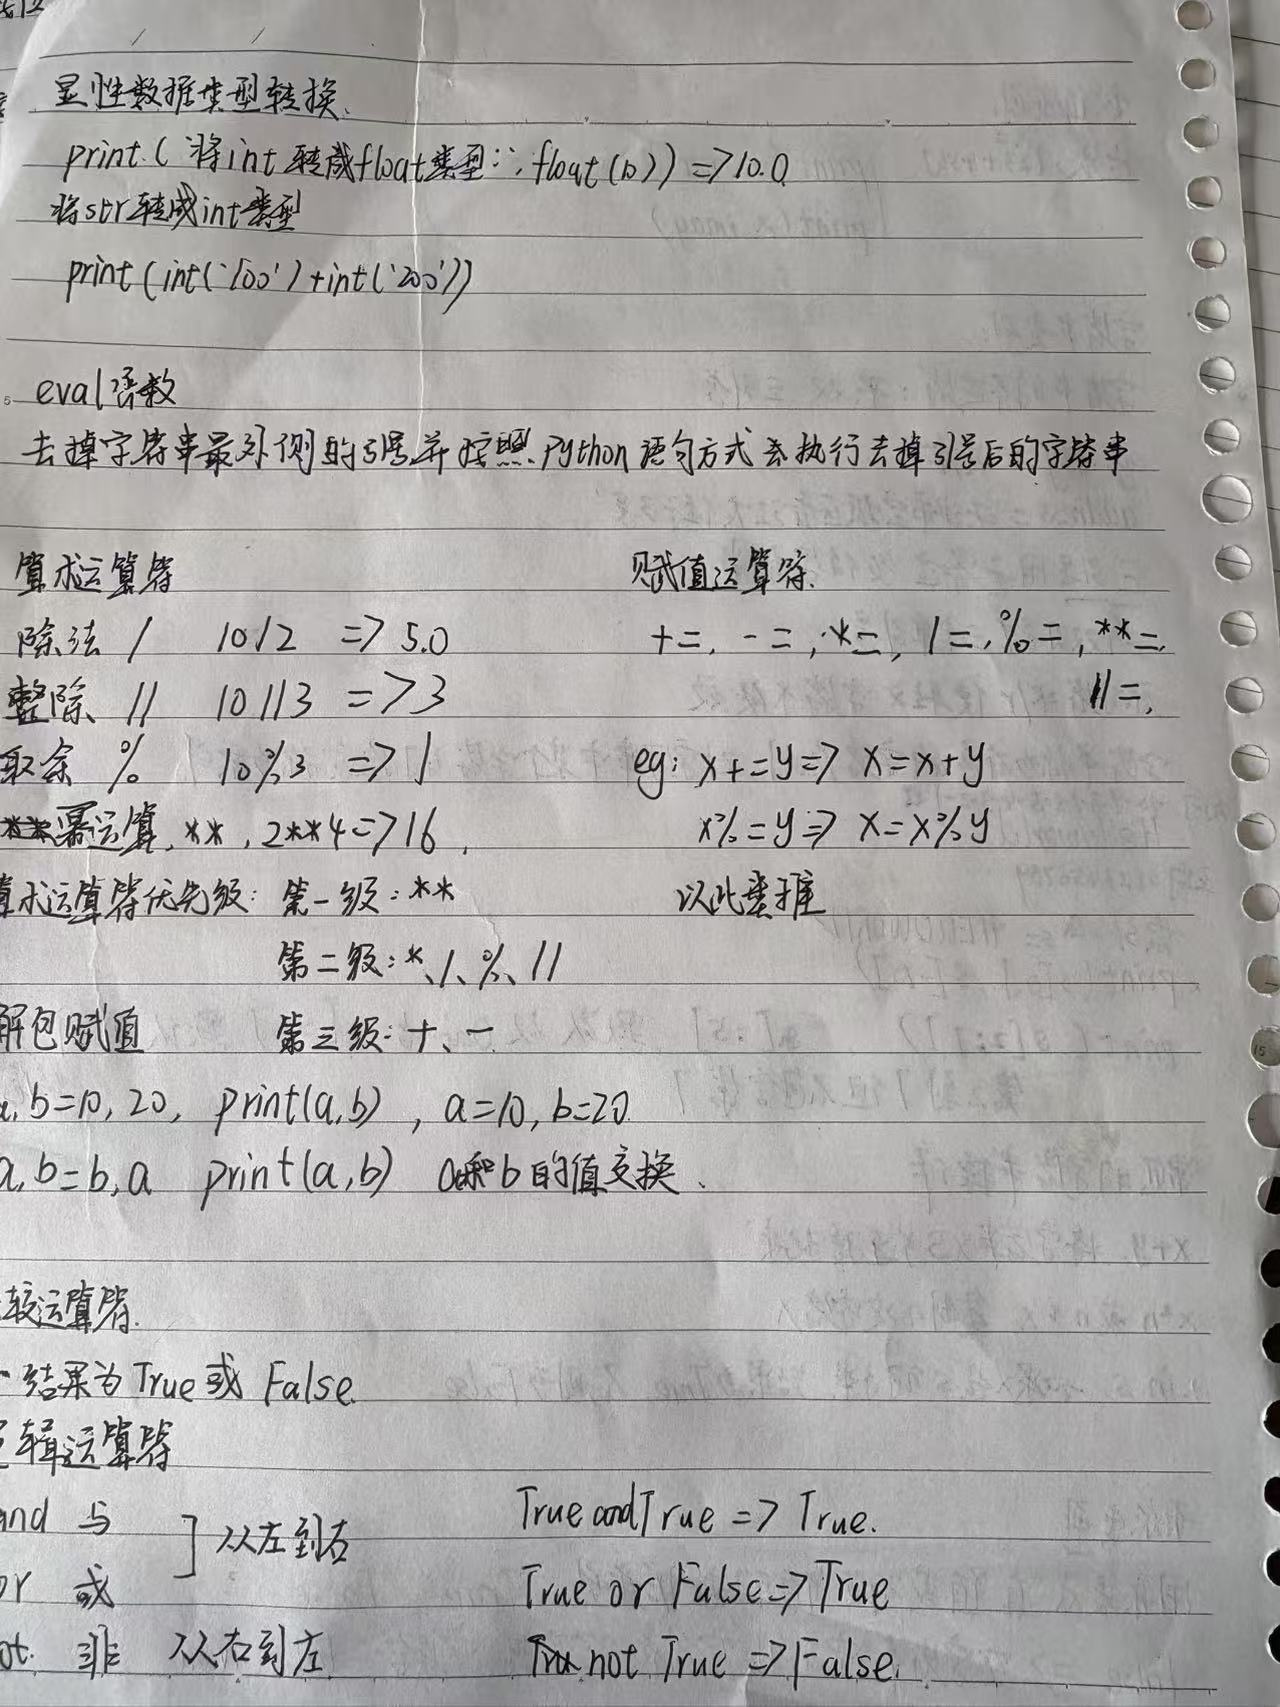 显性数据类型转换.
print.( '将int转成float类型:', float(10)) => 10.0
将str转成int类型
print(int('100')+int('200'))
eval函数
去掉字符串最外侧的引号并按照Python语句方式去执行去掉引号后的字符串
算术运算符
除法 / 10/2 => 5.0
整除 // 10//3 => 3
取余 % 10%3 => 1
幂运算, **, 2**4=>16,
算术运算符优先级: 第一级: **
第二级: *、/、%、//
第三级: +、-
赋值运算符.
+=, -=, *=, /=, %=, **=,
//=,
eg: x+=y=> x=x+y
x%=y=> x=x%y
以此类推
解包赋值
a, b=10, 20, print(a,b) , a=10, b=20.
a, b=b,a print(a,b) a和b的值交换.
较运算符.
结果为True或 False.
辑运算符
and 与
or 或
] 从左到右
not. 非 从右到左
True and True => True.
True or False=> True
not True => False.